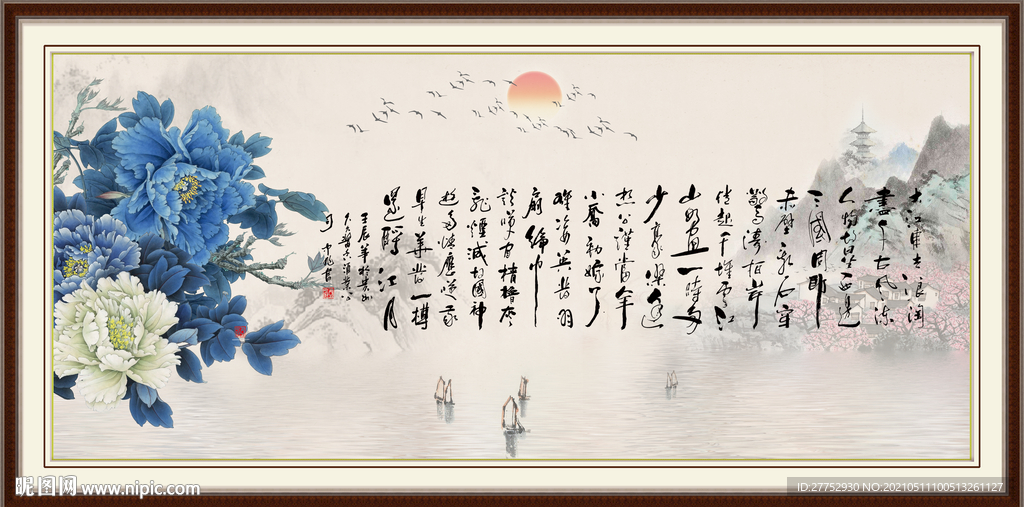 大江東去浪淘
盡千古風流
人物故壘西邊
三國周郎
赤壁乱石穿
驚濤拍岸
捲起千堆雪江
山如画一時多
少豪傑遥
想公瑾當年
小喬初嫁了
雄姿英發羽
扇綸巾
談笑間檣櫓灰
飛煙滅故國神
遊多情應笑我
早生華髮一樽
還酹江月
昵图网 www.nipic.com
ID:27752930 NO:20210511100513261127